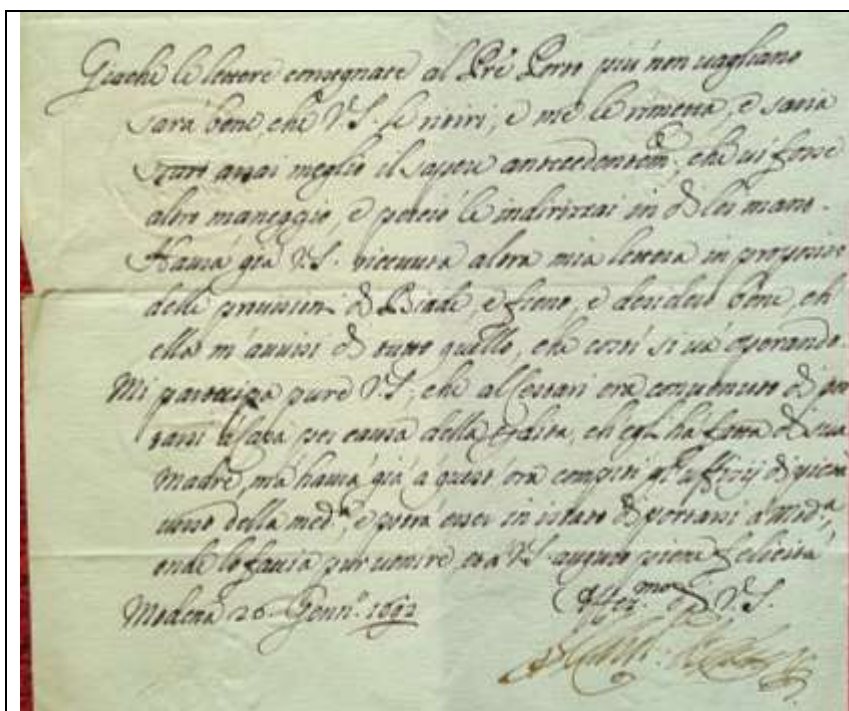 Giache le lettere consegnate al Pre Porro piu' non uagliano
sarà bene, che V.S. le ritiri, e me le rimetta, e saria
stato assai meglio il sapere antecedentem.e, che ui fosse
altro maneggio, e perciò le indirizzai in di lei mano.
Haurà già V.S. riceuuta altra mia lettera in proposito
delle prouisioni di Biade, e fieno, e desidero bene, ch'
ella m'auuisi di tutto quello, che costì si uà operando.
Mi partecipa pure V.S., che al Ferrari era conuenuto di por
tarsi à casa per causa della perdita, ch'egli ha fatta di sua
Madre, mà haurà già à quest' ora compiti gl' uffizij di pietà
uerso della med.a, e potrà esser in istato di portarsi a
onde lo faccia pur uenire, et à V.S. auguro piene felicità
Modena 26. Genn.o 1692
Aff.mo di V.S.